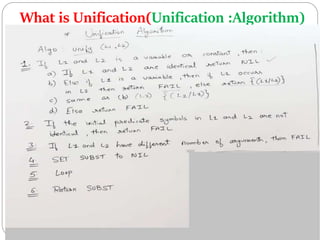 What is Unification(Unification :Algorithm)
* Unification Algorithm
Algo Unify (L1, L2)
1. If L1 and L2 is a variable or constant, then:
a) If L1 and L2 are identical return NIL
b) Else if L1 is a variable, then if L1 occurs
in L2 then return FAIL, else return {(L2/L1)}
c) same as (b) (L2) {(L1/L2)}
d) Else return FAIL
2 If the initial predicate symbols in L1 and L2 are not
identical, then return FAIL
3. If L1 and L2 have different number of arguments, then FAIL
4 SET SUBST to NIL
5 Loop
6 Return SUBST